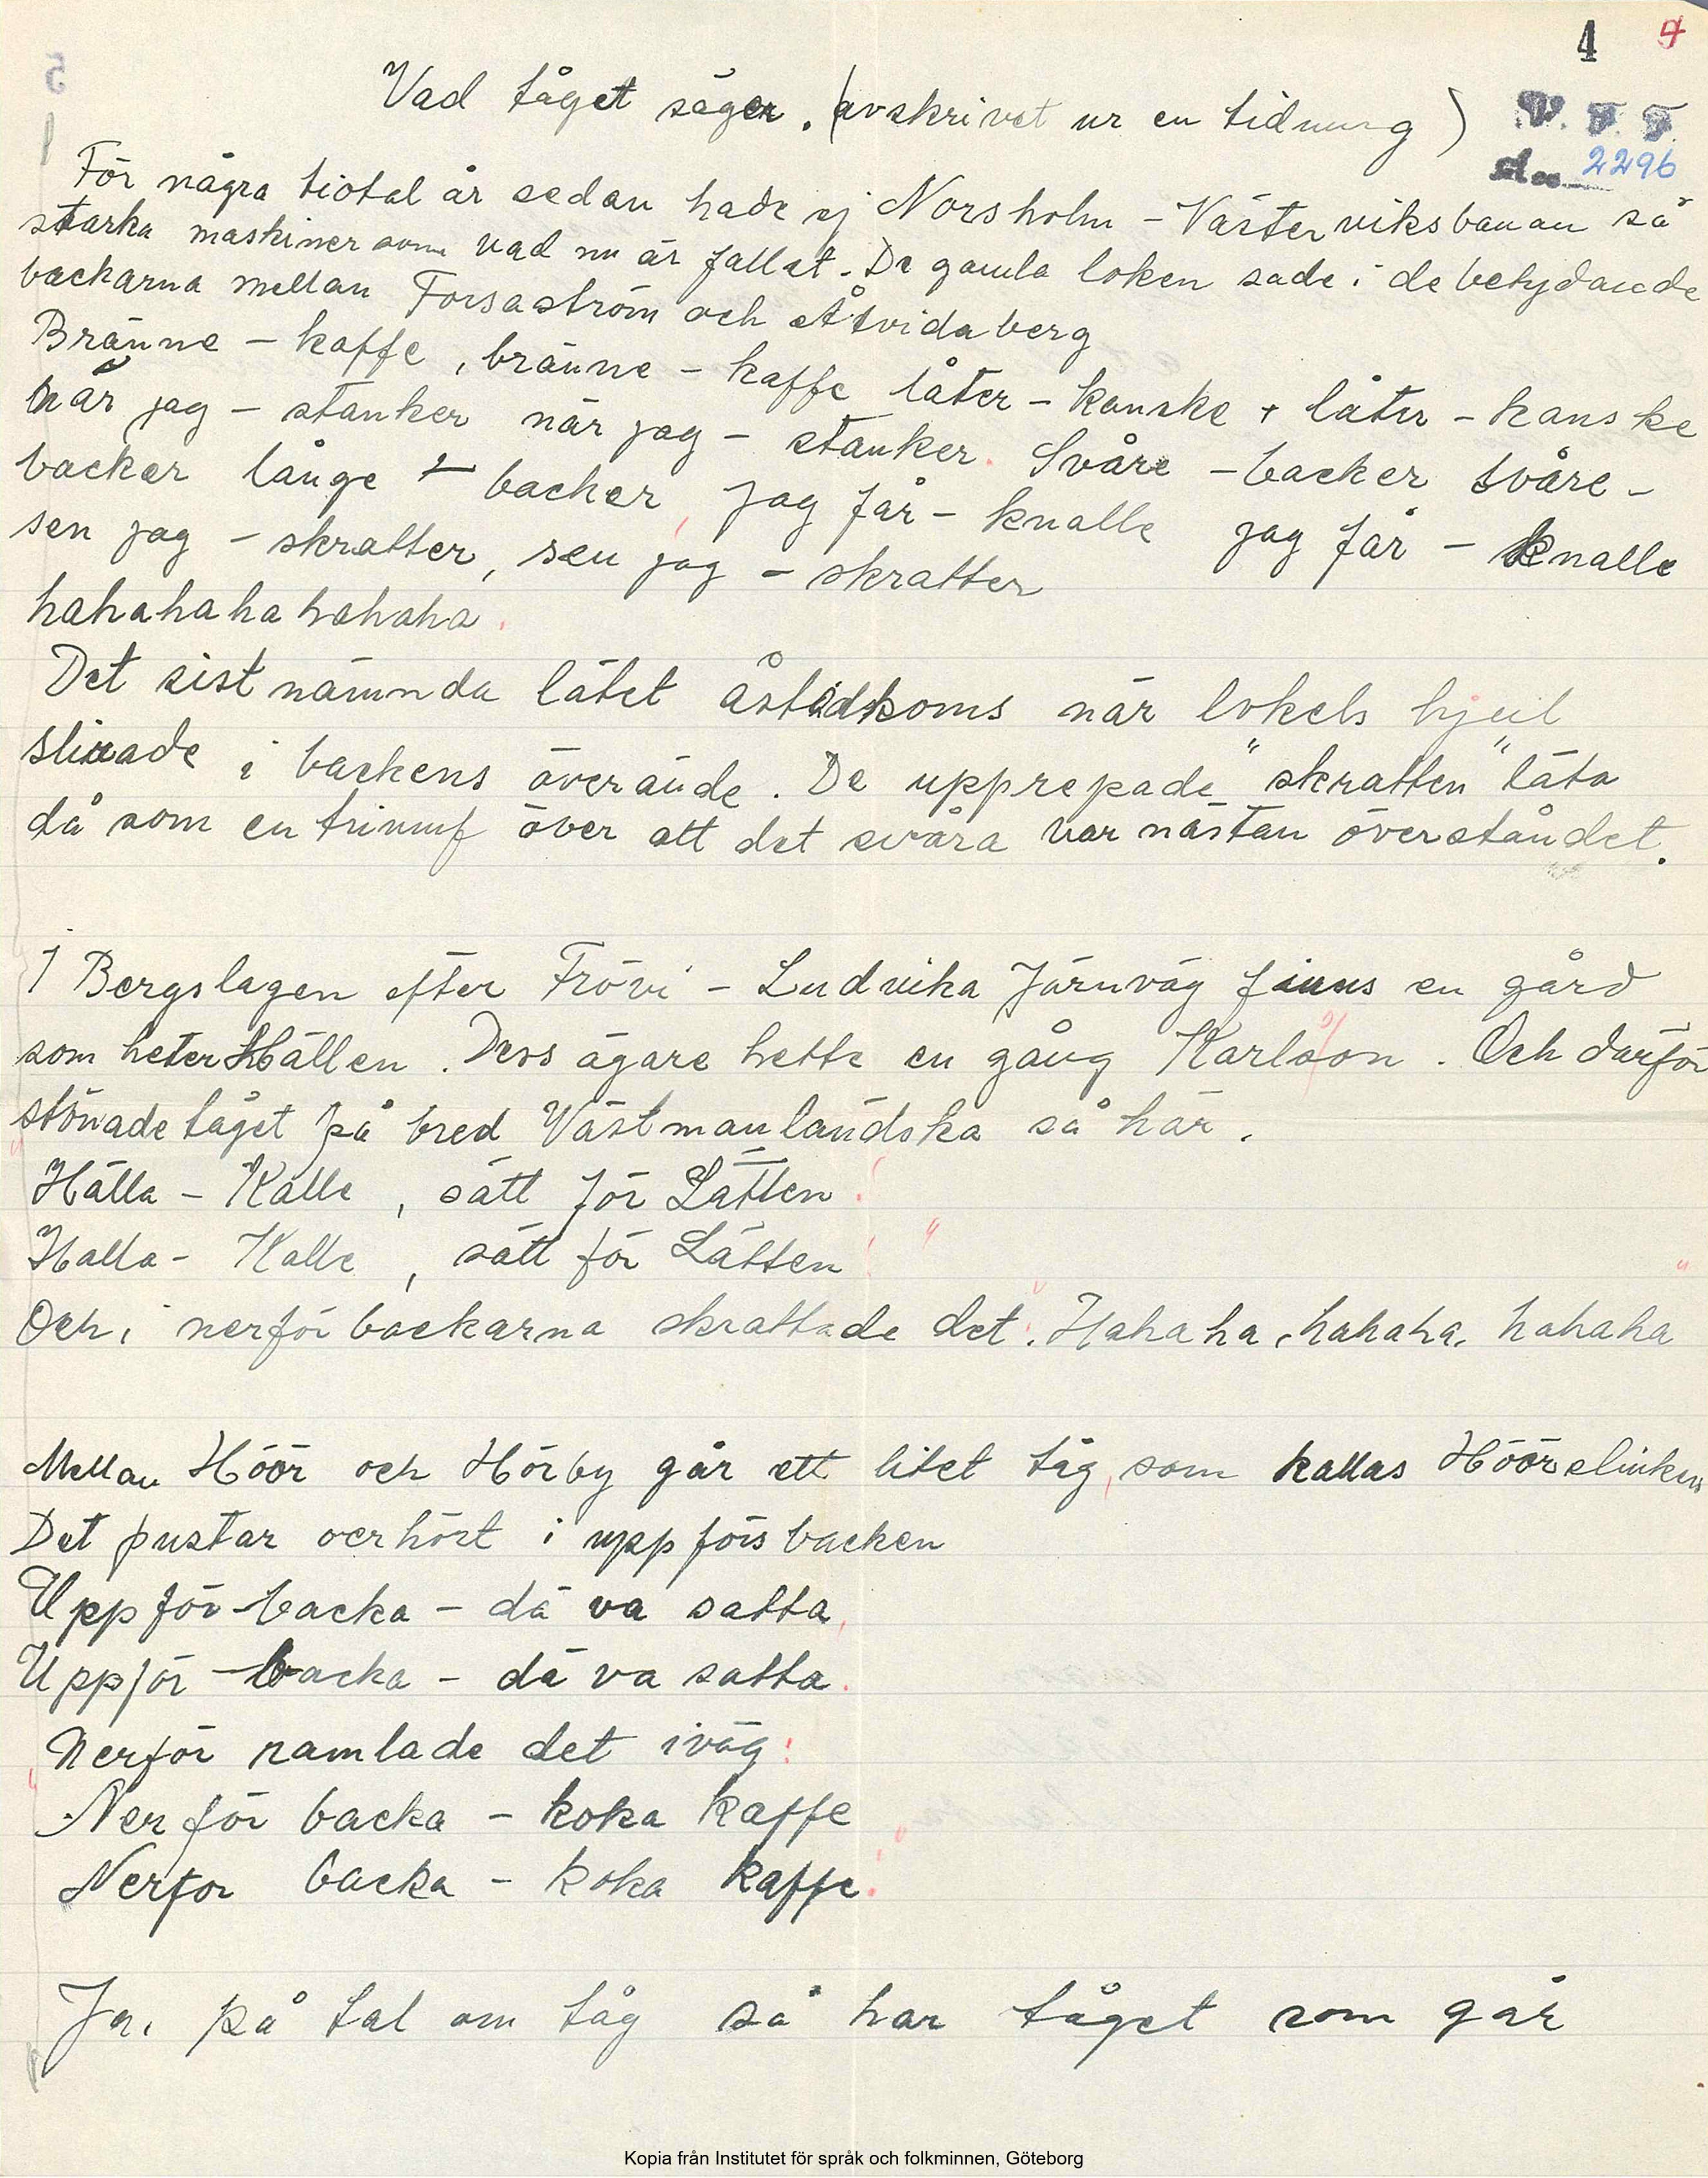 4 4
Vad tåget säger. (avskrivet ur en tidning)
V. F. F.
2296
För några tiotal år sedan hade ej Norsholm - Västerviksbanan så
starka maskiner som vad nu är fallet. De gamla loken sade i de betydande
backarna mellan Forsaström och Åtvidaberg
Bränne - kaffe, bränne - kaffe låter - kanske låter - kanske
när jag - stanker när jag - stanker. Svåre - backer svåre -
backer långe - backer, jag får - knalle jag får - knalle
sen jag - skratter, sen jag - skratter
hahahahahahaha.
Det sistnämnda lätet åstadkoms när lokets hjul
slirade i backens överände. De upprepade "skratten" läto
då som en triumf över att det svåra var nästan överståndet.
I Bergslagen efter Frövi - Ludvika Järnväg finns en gård
som heter Hällen. Dess ägare hette en gång Karlson. Och därför
stönade tåget på bred Västmanländska så här.
Hälla - Kalle, sätt för Lätten.
Hälla - Kalle, sätt för Lätten!"
Och i nerförbackarna skrattade det: "Hahaha, hahaha, hahaha"
Mellan Höör och Hörby går ett litet tåg, som kallas Höörslinken
Det pustar oerhört i uppförsbacken
Uppför-backa - dä va satta,
Uppför-backa - dä va satta.
Nerför ramlade det iväg:
"Nerför backa - koka kaffe
Nerför backa - koka kaffe."
Ja, på tal om tåg så har tåget som går
Kopia från Institutet för språk och folkminnen, Göteborg